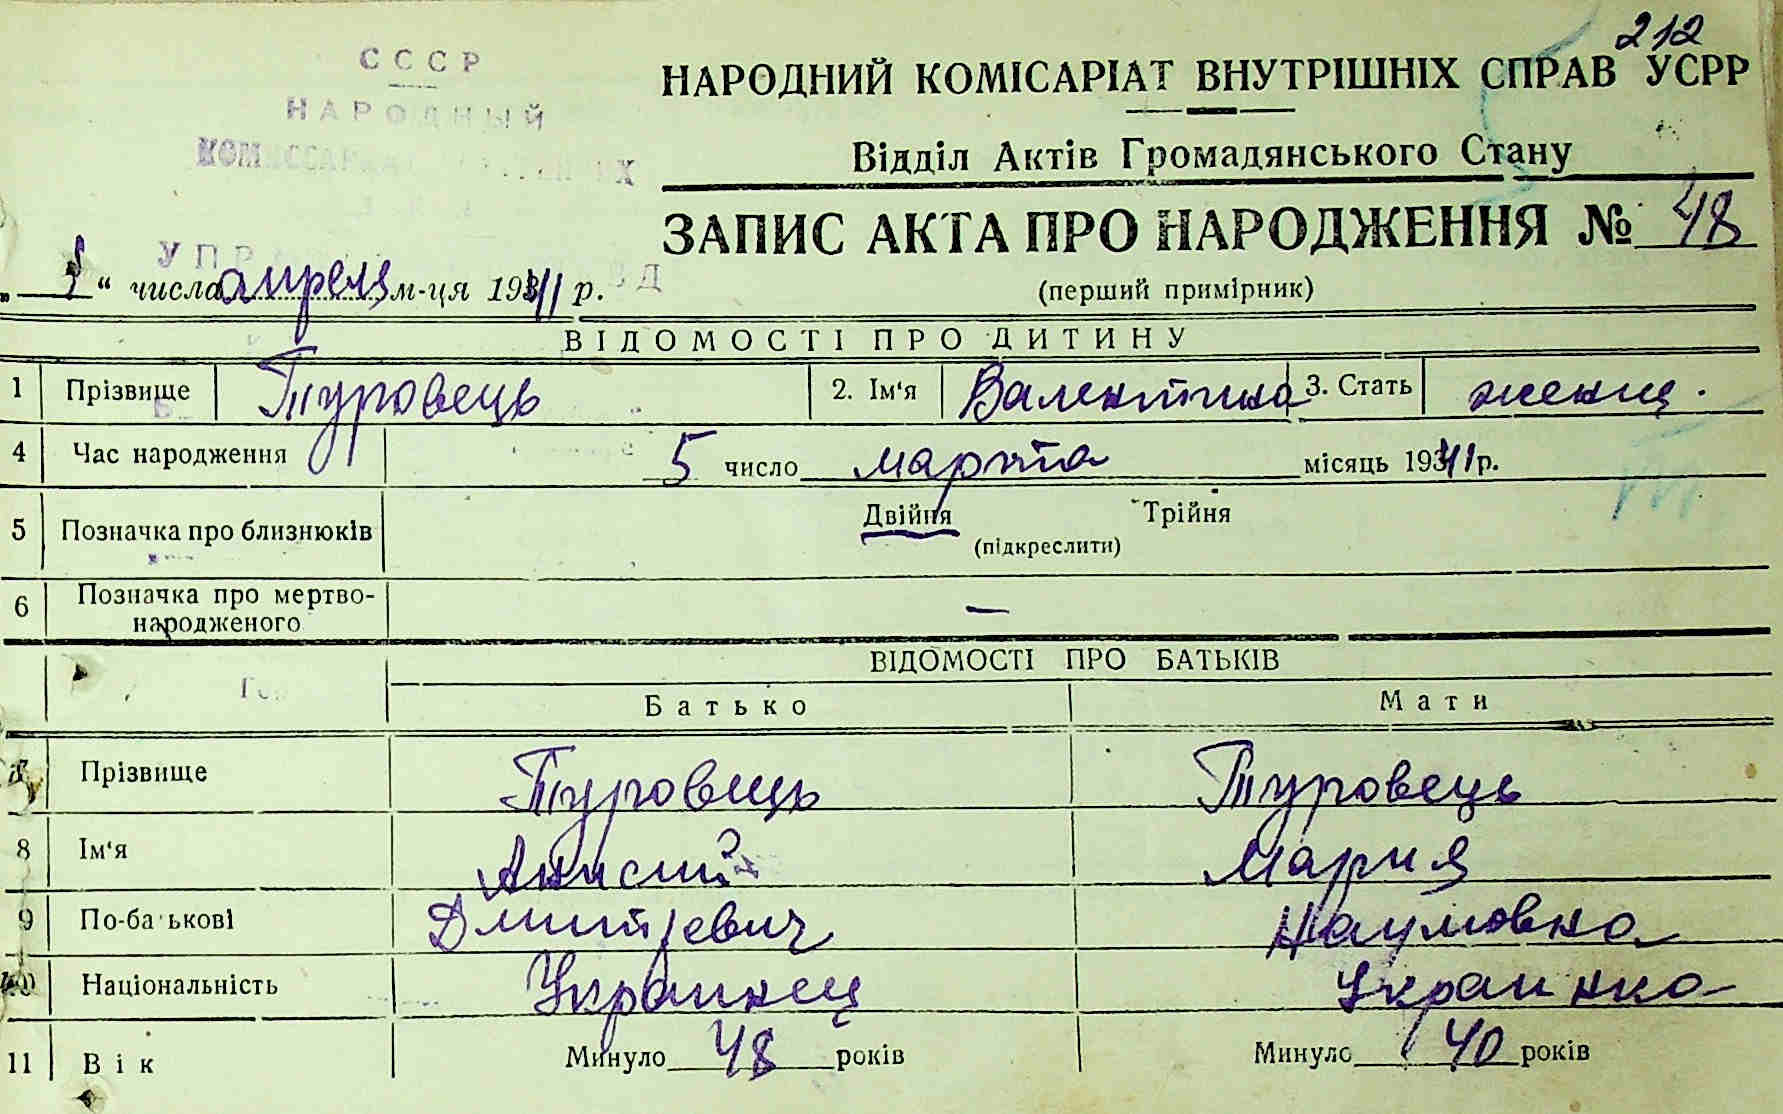 212
СССР
НАРОДНЫЙ
НАРОДНИЙ КОМІСАРІАТ ВНУТРІШНІХ СПРАВ УСРР
Відділ Актів Громадянського Стану
ЗАПИС АКТА ПРО НАРОДЖЕННЯ № 48
„ “ числа апреля м-ця 1941 р.
(перший примірник)
ВІДОМОСТІ ПРО ДИТИНУ
1 Прізвище Туровець 2. Ім'я Валентина 3. Стать женщ.
4 Час народження 5 число марта місяць 1941 р.
5 Позначка про близнюків Двійня Трійня
(підкреслити)
6 Позначка про мертво-
народженого —
ВІДОМОСТІ ПРО БАТЬКІВ
Батько Мати
7 Прізвище Туровець Туровець
8 Ім'я Анисий Мария
9 По-батькові Дмитревич Наумовна
10 Національність Украинец Украинка
11 Вік Минуло 48 років Минуло 40 років